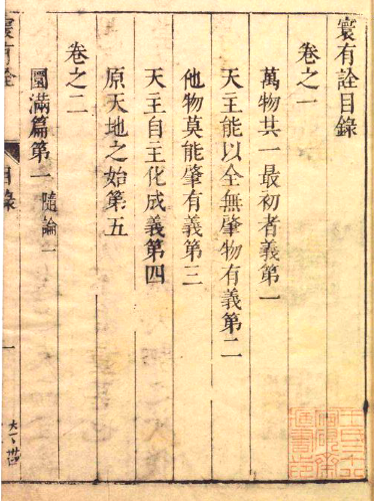 寰有詮目錄
卷之一
萬物共一最初者義第一
天主能以全無肇物有義第二
他物莫能肇有義第三
天主自主化成義第四
原天地之始第五
卷之二
圜滿篇第一 隨論一
寰有詮
目錄
一